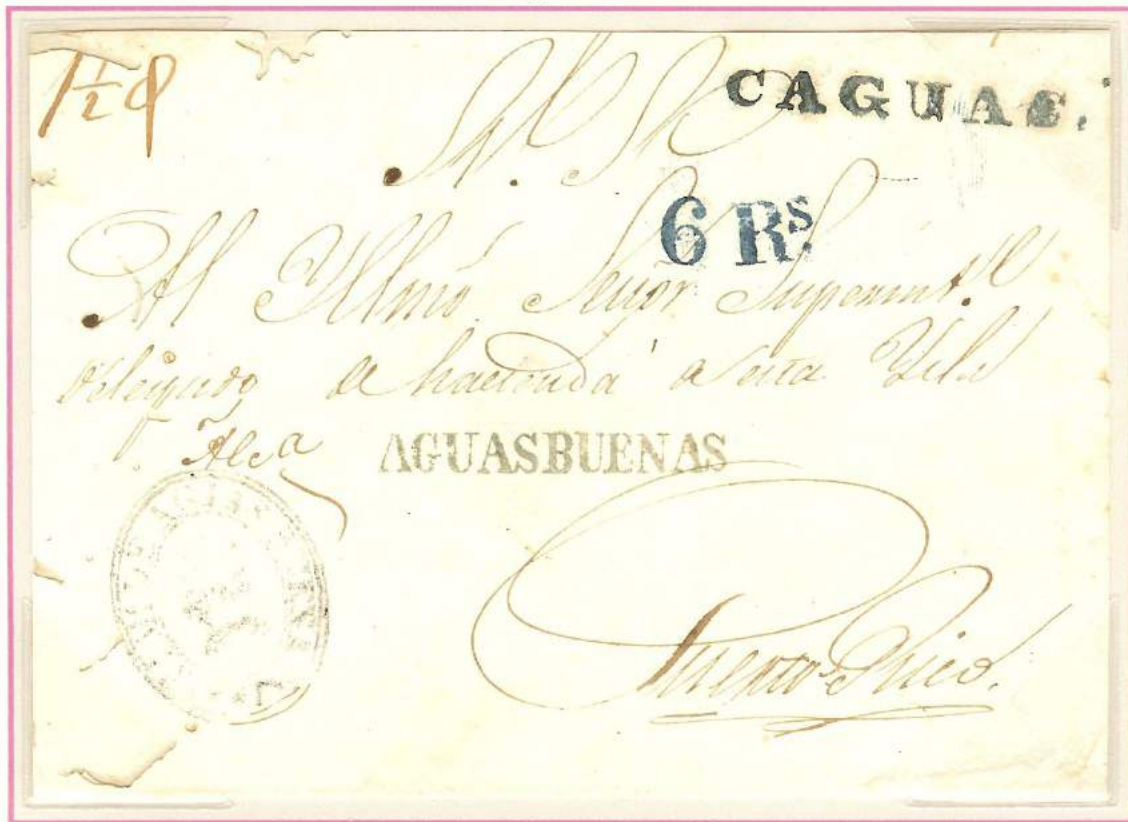 1½
CAGUAS.
S. N.
6 Rs.
Al Yllmó Señor Superint.te
delegado de hacienda de esta Ysla
Alc.a
AGUASBUENAS
Puerto Rico.